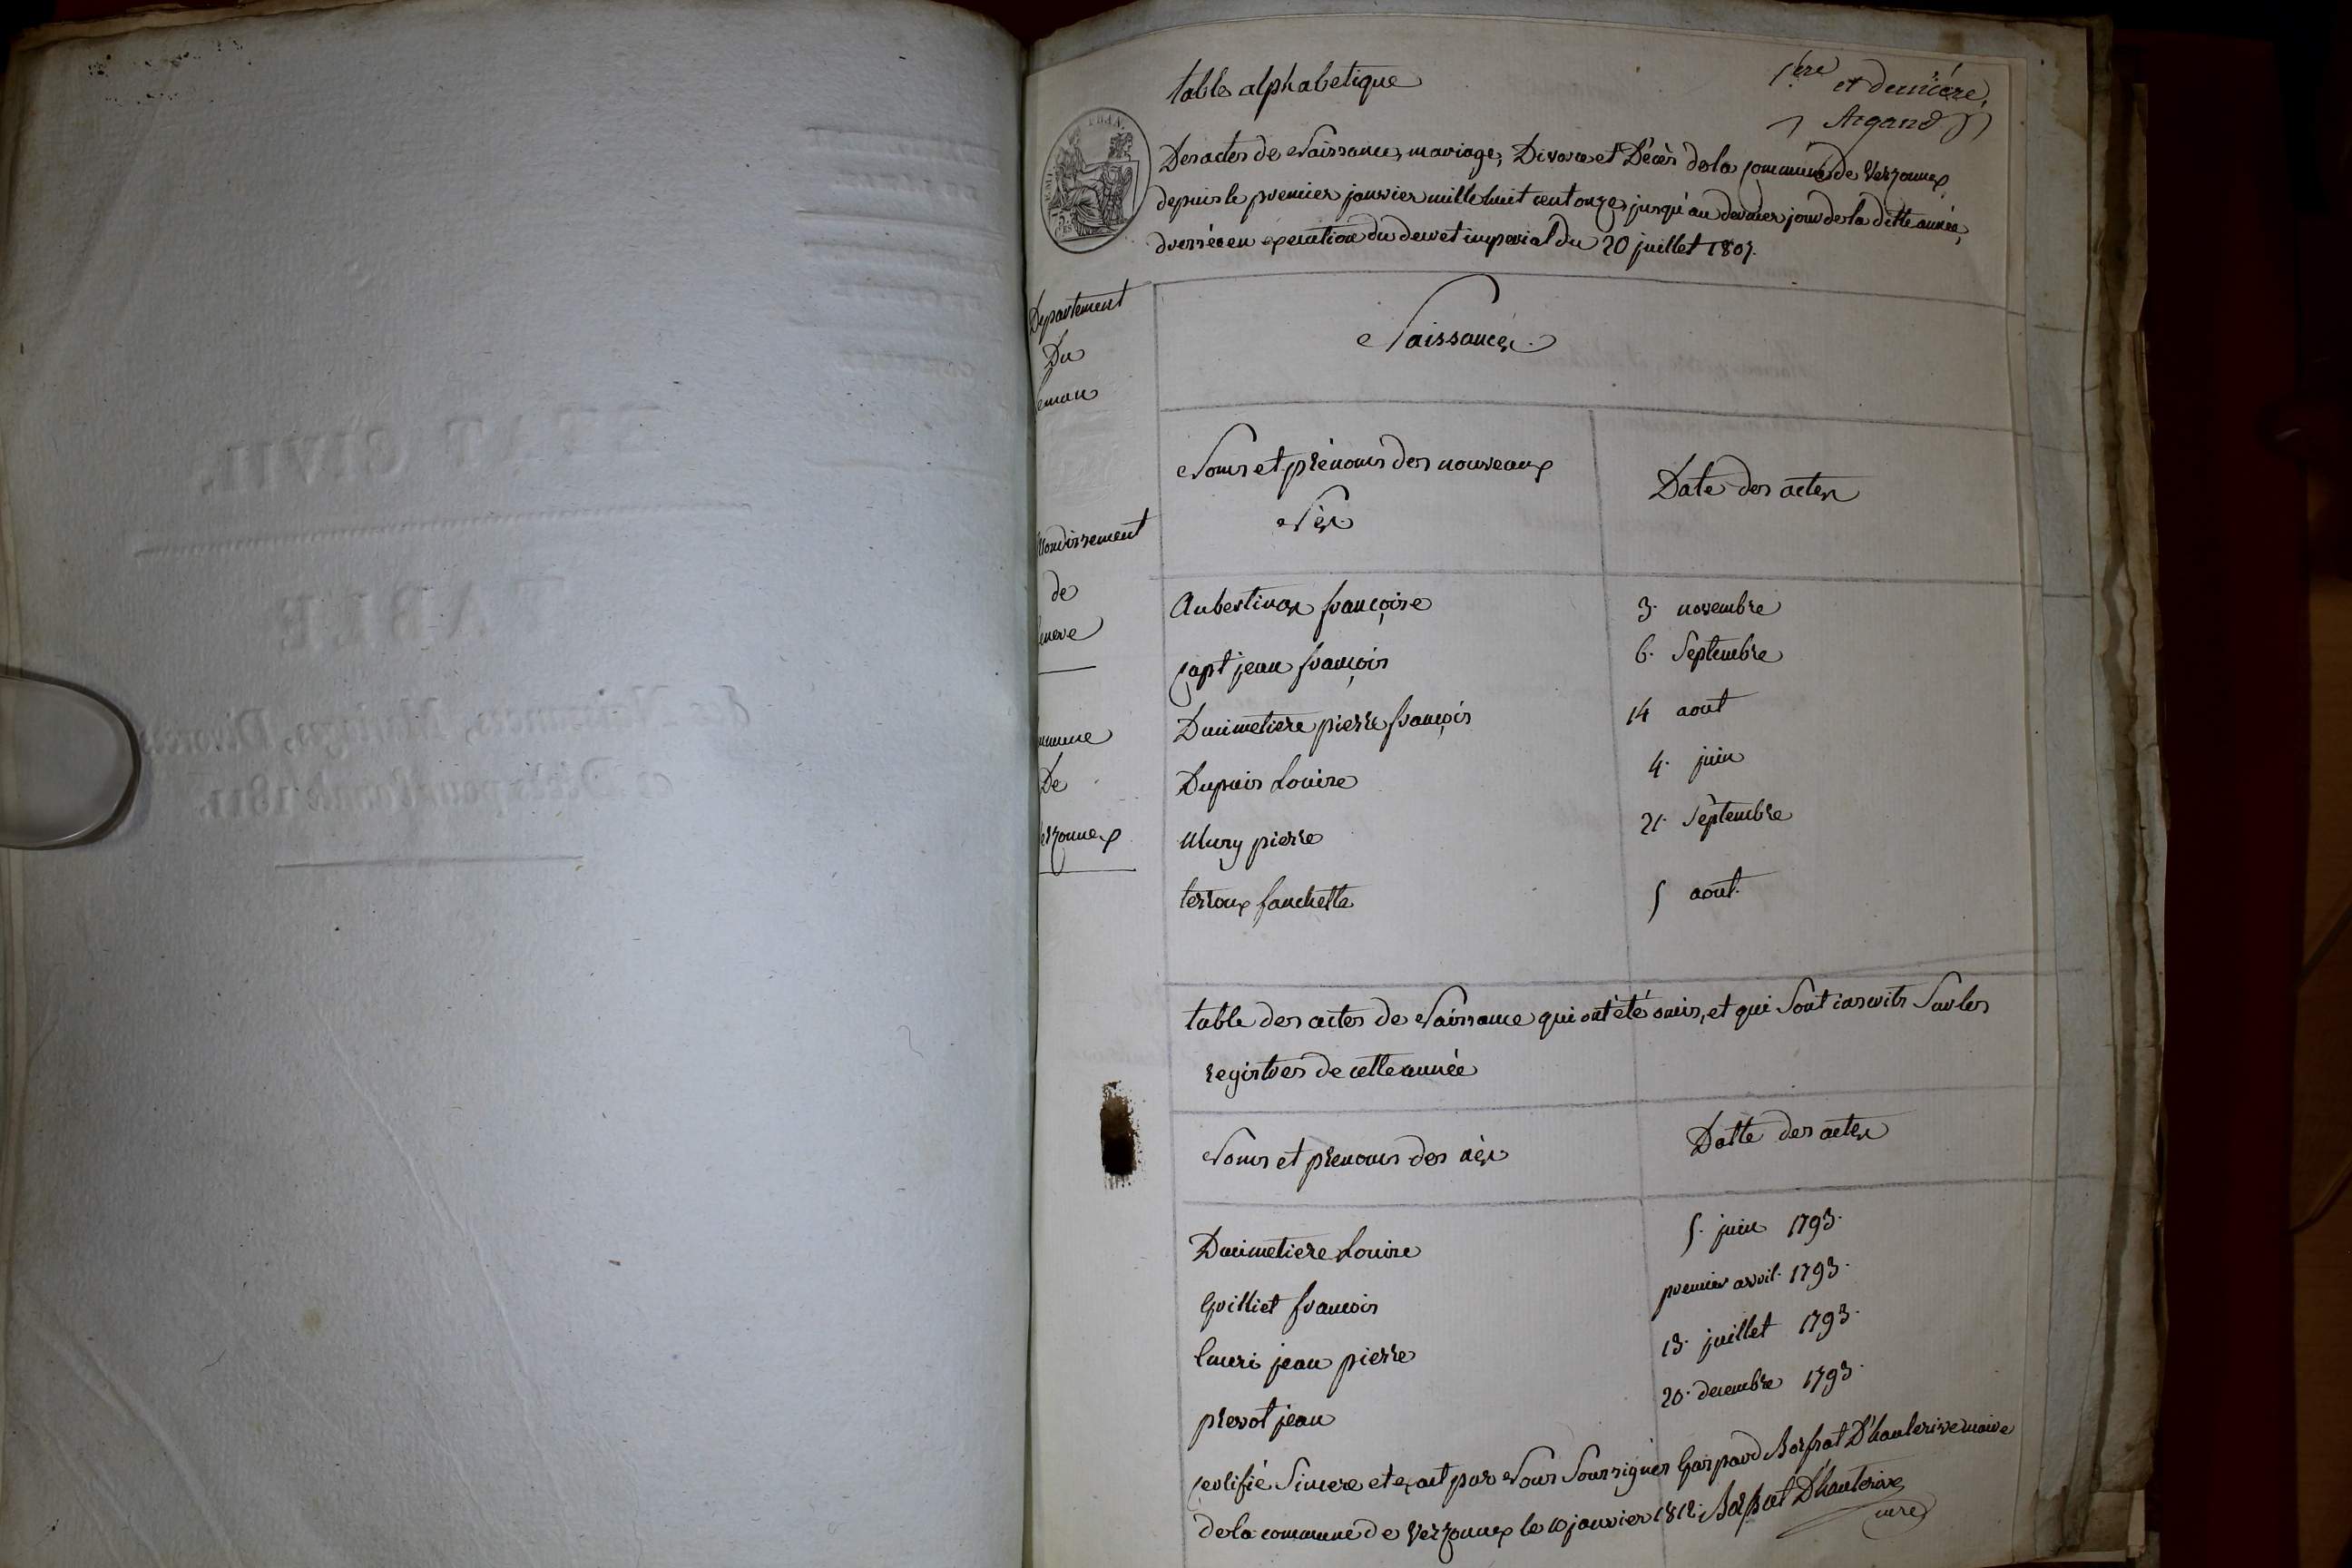 table alphabetique
1ère et dernière,
Argand
Des actes de Naissance, mariage, Divorce et Décès de la Commune de Versonnex
depuis le premier janvier mille huit cent onze, jusqu'au dernier jour de la ditte année,
dressée en execution du decret imperial du 20 juillet 1807.
Departement
Du
eman
Naissances.
Noms et prénoms des nouveaux
Nés.
Date des actes
rondissement
de
eneve
mmune
De
ersonnex
Aubertinaz françoise 3. novembre
Capt jean françois 6. Septembre
Ducimetiere pierre françois 14 aout
Dupuis Louise 4. juin
Mury pierre 21. Septembre
terroux fanchette 5 aout.
table des actes de Naissance qui ont été omis, et qui Sont inscrits Sur les
registres de cette année
Noms et prenoms des nés
Datte des actes
Ducimetiere Louise 5. juin 1793.
Grilliet francois premier avril. 1793.
jean pierre 13. juillet 1793.
prevot jean 20. decembre 1793.
Certifié Sincere et exact par Nous Soussignés Gaspard D'hauterive maire
de la commune de Versonnex le 10 janvier 1812. D'hauterive
ETAT CIVIL.
TABLE
de Naissances, Mariages, Divorces
et Décès pour l'année 1811.